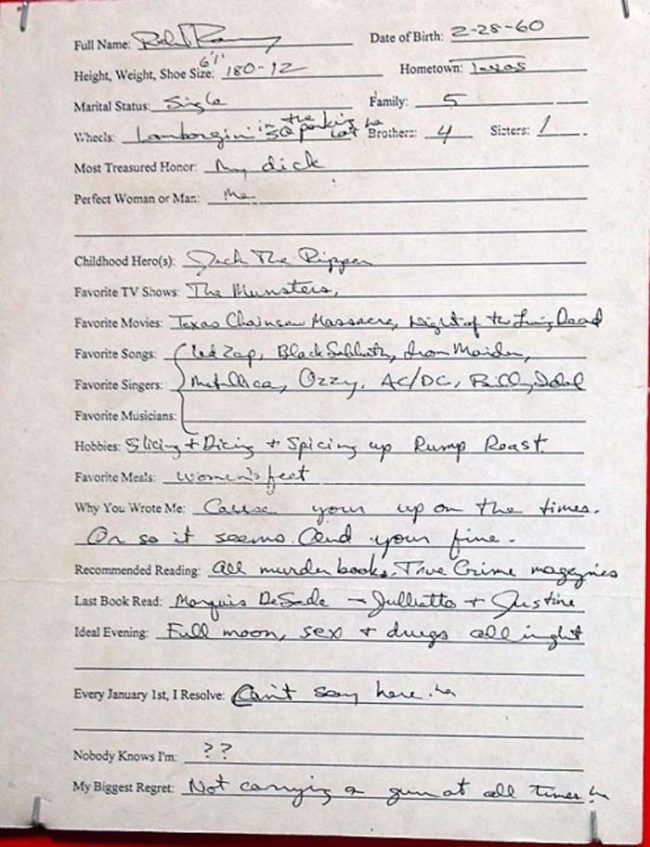 Full Name: Richard Ramirez Date of Birth: 2-28-60
6'1"
Height, Weight, Shoe Size: 180-12 Hometown: Texas
Marital Status: Single Family: 5
Wheels: Lamborgini in the SQ parking lot ha Brothers: 4 Sisters: 1
Most Treasured Honor: My dick
Perfect Woman or Man: Me.
Childhood Hero(s): Jack The Ripper
Favorite TV Shows: The Munsters,
Favorite Movies: Texas Chainsaw Massacre, Night of the Living Dead
Favorite Songs: Led Zep, Black Sabbath, Iron Maiden,
Favorite Singers: Metallica, Ozzy, AC/DC, Billy Idol
Favorite Musicians:
Hobbies: Slicing + Dicing + Spicing up Rump Roast.
Favorite Meals: Women's feet
Why You Wrote Me: Cause your up on the times.
Or so it seems. And your fine.
Recommended Reading: All murder books, True Crime magezines
Last Book Read: Marquis DeSade - Julliette + Justine
Ideal Evening: Full moon, sex + drugs all night
Every January 1st, I Resolve: Can't say here. ha
Nobody Knows I'm: ??
My Biggest Regret: Not carrying a gun at all times! ha